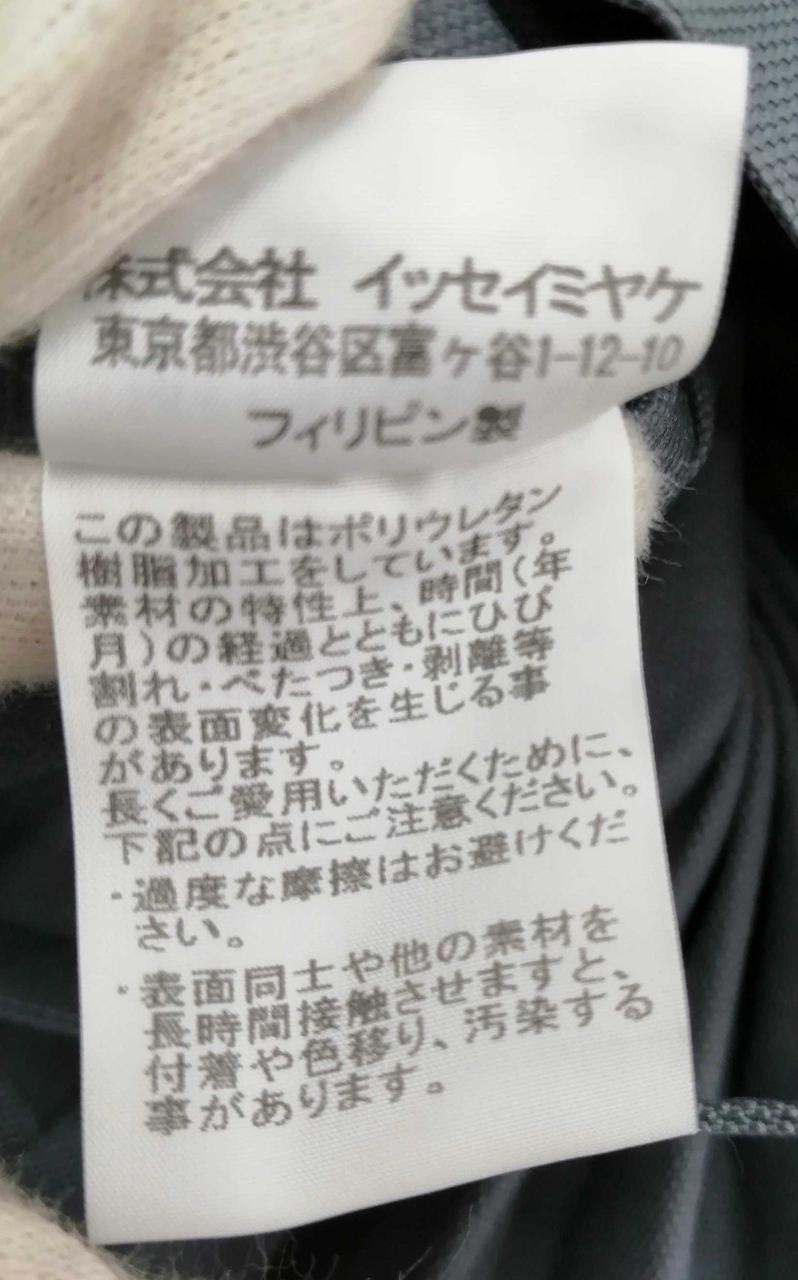 株式会社 イッセイミヤケ
東京都渋谷区富ヶ谷1-12-10
フィリピン製
この製品はポリウレタン
樹脂加工をしています。
素材の特性上、時間(年
月)の経過とともにひび
割れ・べたつき・剥離等
の表面変化を生じる事
があります。
長くご愛用いただくために、
下記の点にご注意ください。
・過度な摩擦はお避けくだ
さい。
・表面同士や他の素材を
長時間接触させますと、
付着や色移り、汚染する
事があります。